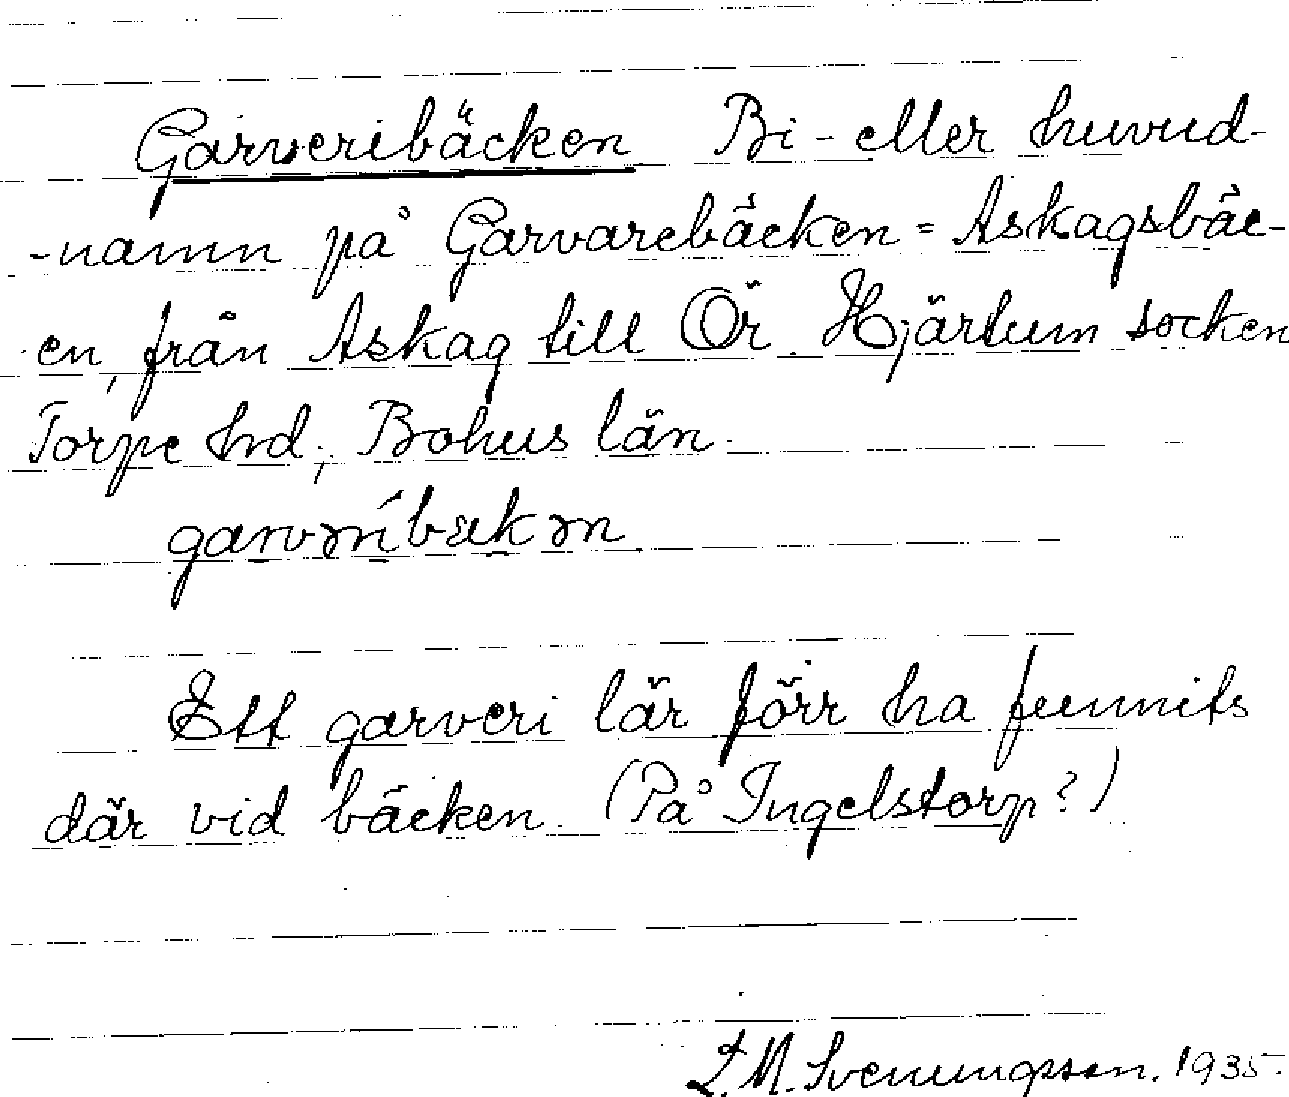 Garveribäcken Bi- eller huvud-
-namn på Garvarebäcken = Askagsbäc-
en, från Askag till Ör. Hjärtum socken
Torpe hrd, Bohus län.
Ett garveri lär förr ha funnits
där vid bäcken. (På Ingelstorp?)
L. M. Svenungsson. 1935.